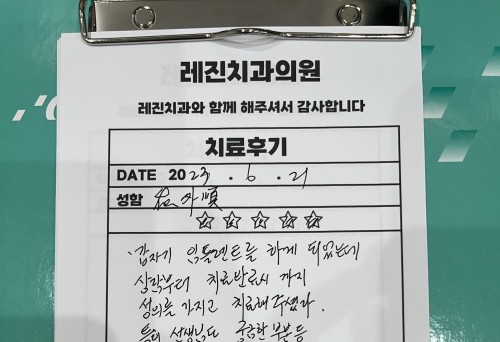 레진치과의원
레진치과와 함께 해주셔서 감사합니다
치료후기
DATE 2023 . 6 . 21
성함 外順
갑자기 임플란트를 하게 되었는데
상담부터 치료완료시 까지
성의를 가지고 치료해 주셨다.
특히 선생님도 궁금한 부분 등